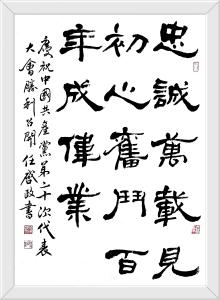 忠誠萬載見
初心奮鬥百
年成偉業
慶祝中國共產黨第二十次代表
大會勝利召開 任啓政書